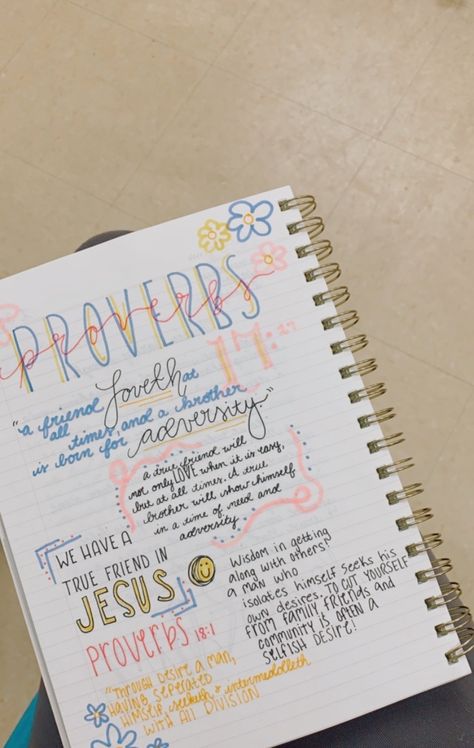 PROVERBS
proverbs
17:17
"a friend loveth at
all times, and a brother
is born for adversity"
a true friend will
not only LOVE when it is easy,
but at all times. A true
brother will show himself
in a time of need and
adversity
WE HAVE A
TRUE FRIEND IN
JESUS
Wisdom in getting
along with others!
a man who
isolates himself seeks his
own desires. TO CUT YOURSELF
FROM FAMILY, FRIENDS and
community IS OFTEN A
SELFISH DESIRE!
PROVERBS 18:1
"THROUGH DESIRE A MAN,
HAVING SEPERATED
HIMSELF, seeketh & intermedolleth
WITH All DIVISION